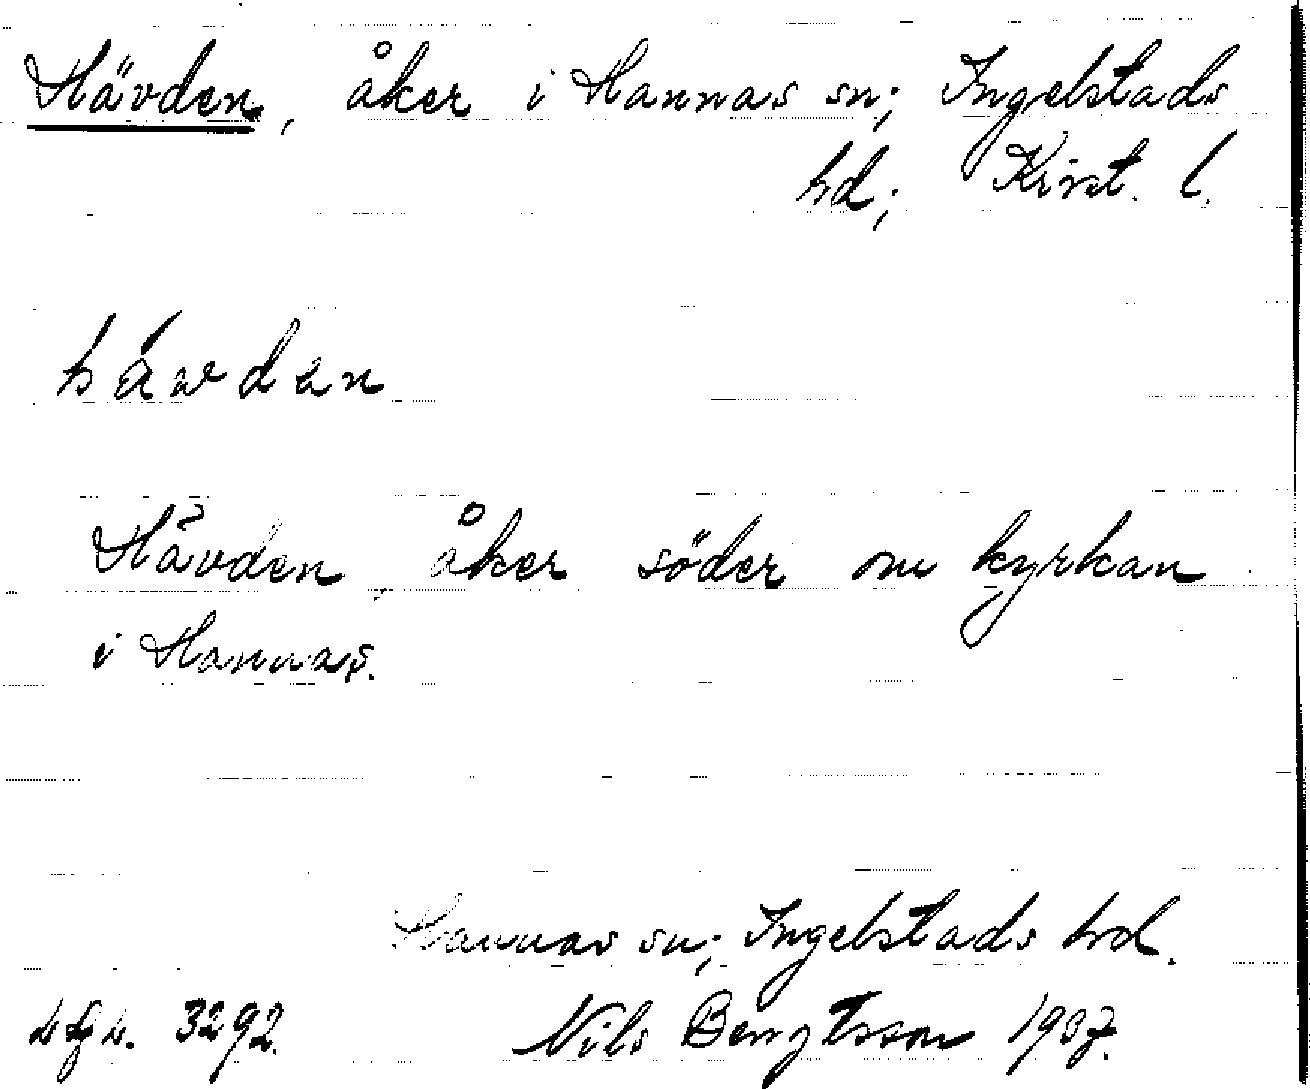 Hävden, åker i Hannas sn; Ingelstads
hd; Krist. l.
hávdan
Hävden åker söder om kyrkan
i Hannas.
Hannas sn; Ingelstads hd.
3292. Nils Bengtsson 1937.